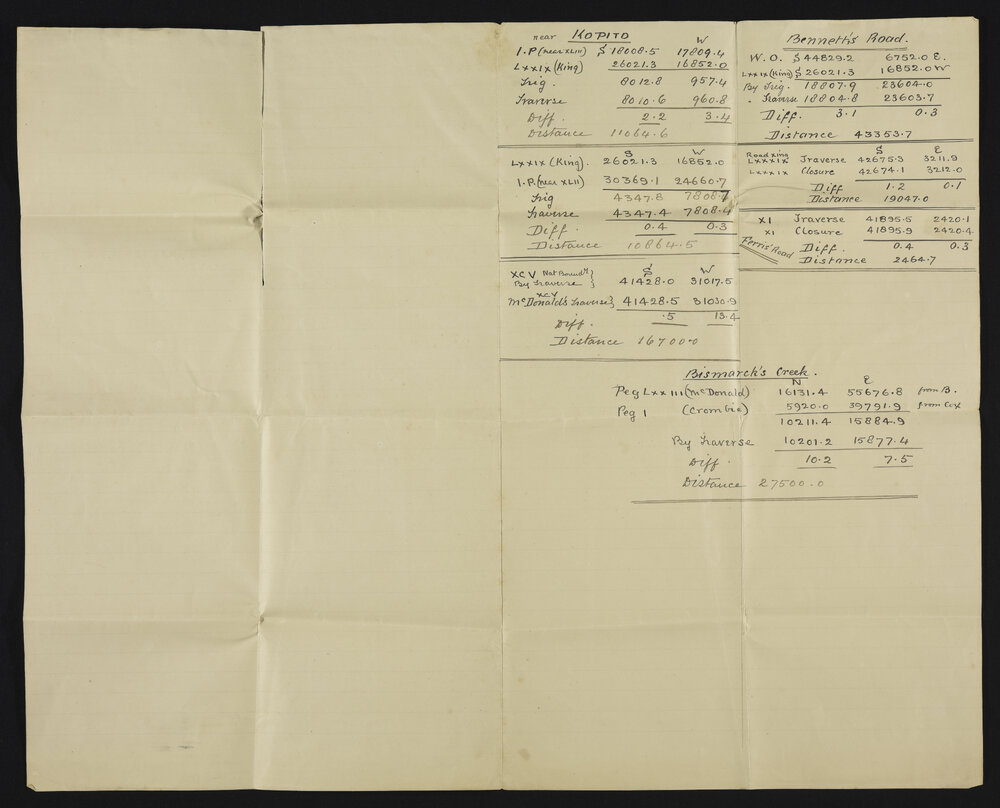 near KOPITO
W
I.P (near XLII) S 18008.5 17809.4
LXXIX (King) 26021.3 16852.0
Trig. 8012.8 957.4
Traverse 8010.6 960.8
Diff. 2.2 3.4
Distance 11064.6
S W
LXXIX (King). 26021.3 16852.0
I.P. (near XLII) 30369.1 24660.7
Trig 4347.8 7808.7
Traverse 4347.4 7808.4
Diff. 0.4 0.3
Distance 10864.5
S W
XCV Nat Boundy }
By Traverse } 41428.0 31017.5
XCV
McDonald's Traverse} 41428.5 31030.9
Diff. .5 13.4
Distance 16700.0
Bennett's Road.
W.O. S 44829.2 6752.0 E.
LXXIX (King) S 26021.3 16852.0 W
By Trig. 18807.9 23604.0
" Traverse 18804.8 23603.7
Diff. 3.1 0.3
Distance 43353.7
S E
Road Xing
LXXXIX Traverse 42675.3 3211.9
LXXXIX Closure 42674.1 3212.0
Diff 1.2 0.1
Distance 19047.0
XI Traverse 41895.5 2420.1
XI Closure 41895.9 2420.4
Ferris' Road
Diff. 0.4 0.3
Distance 2464.7
Bismarck's Creek.
N E
Peg LXXIII (McDonald) 16131.4 55676.8 from B.
Peg I (Crombie) 5920.0 39791.9 from Cox
10211.4 15884.9
By Traverse 10201.2 15877.4
Diff. 10.2 7.5
Distance 27500.0